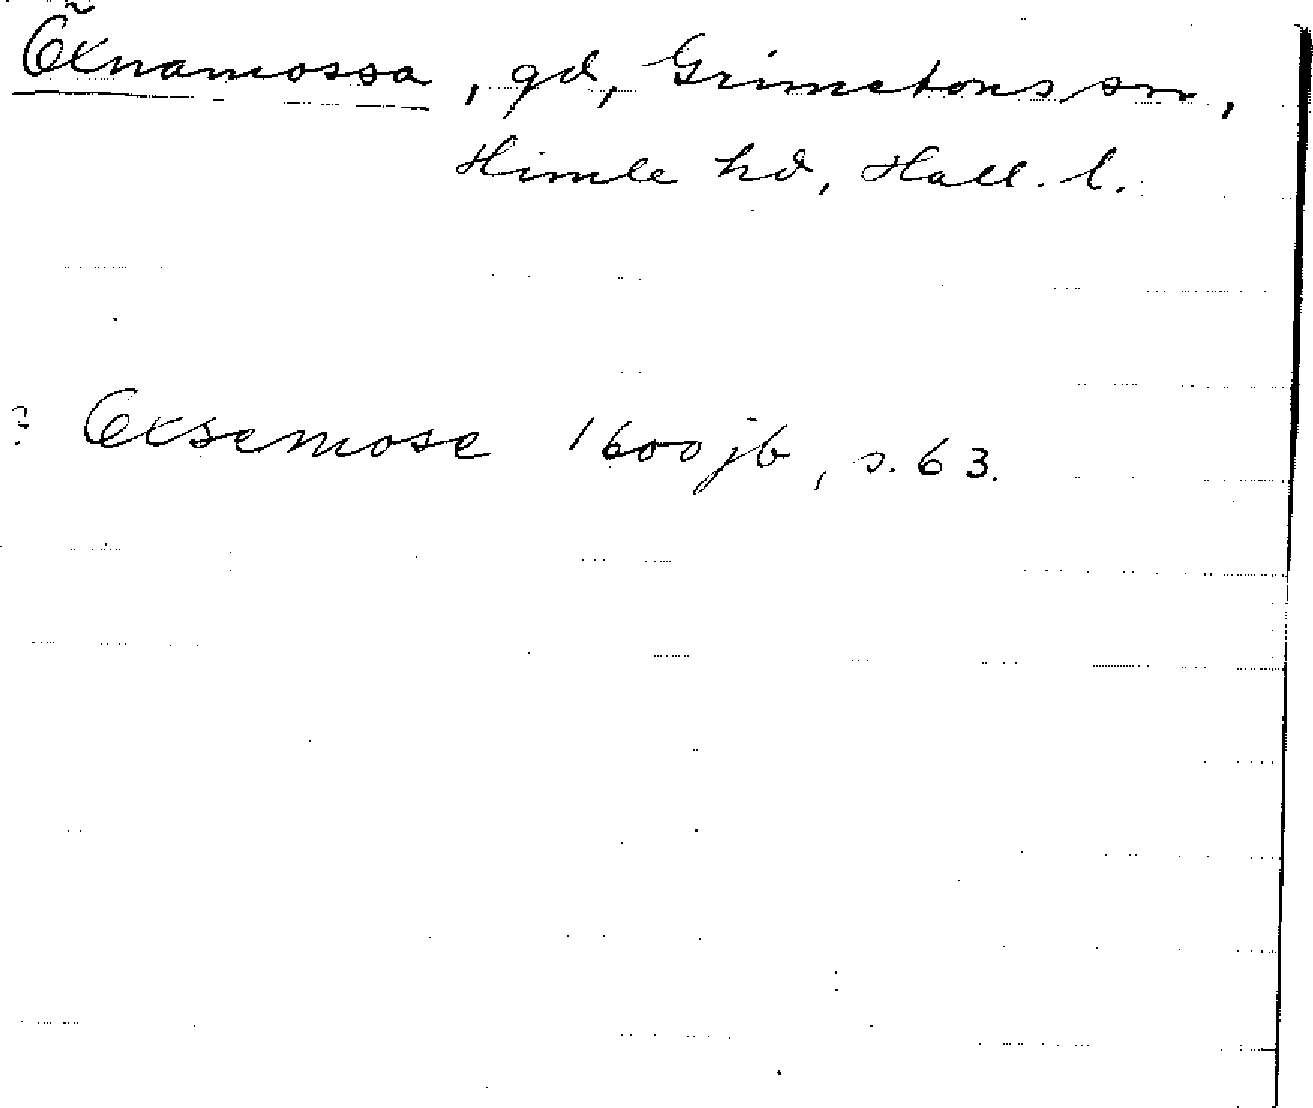 Öxnamossa, gd, Grimetons sn,
Himle hd, Hall. l.
? Oxsemose 1600 jb, s. 63.